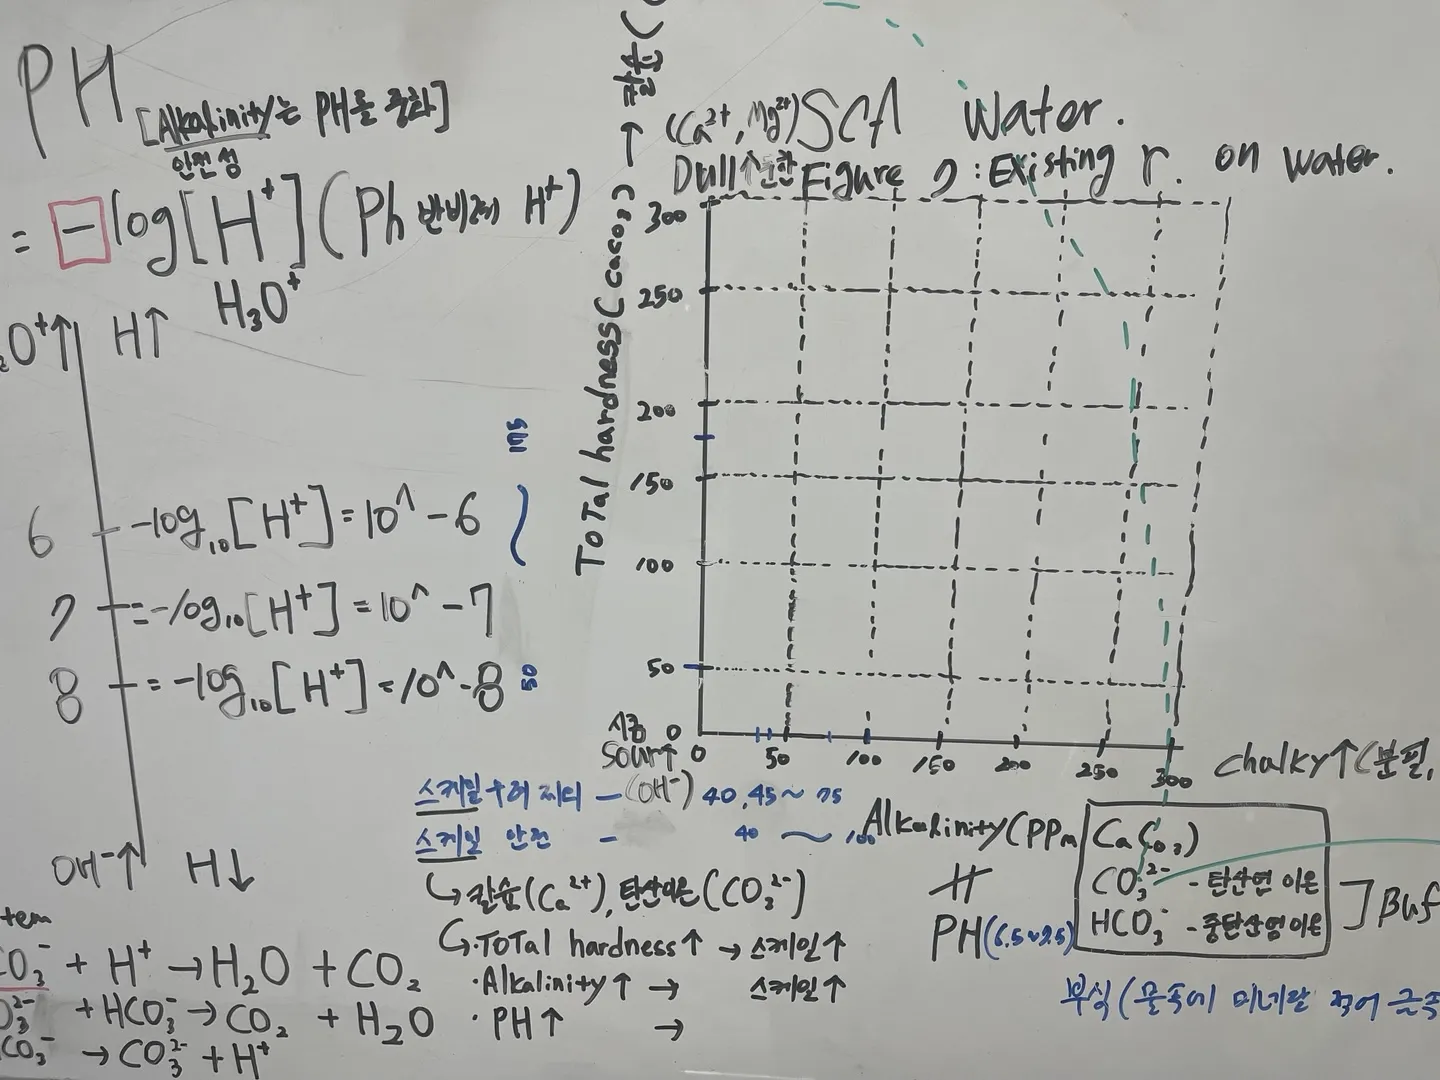 PH
[Alkalinity는 PH를 중화]
안전성
= -log[H⁺] (Ph 반비례 H⁺)
H₃O⁺
O⁺↑ H↑
6 -log₁₀[H⁺]=10^-6
7 =-log₁₀[H⁺]=10^-7
8 =-log₁₀[H⁺]=10^-8
OH⁻↑ H↓
175
50
tem
CO₃⁻ + H⁺ → H₂O + CO₂
O₃²⁻ + HCO₃⁻ → CO₂ + H₂O
CO₃⁻ → CO₃²⁻ + H⁺
(Ca²⁺, Mg²⁺) SCA Water.
Dull↑ 둔한 Figure 2 : Existing r. on water.
Total hardness (CaCO₃) →
300
250
200
150
100
50
시큼 0
Sour↑ 0 50 100 150 200 250 300 Chalky↑(분필,
스케일 우려 지대 - (OH⁻) 40, 45~75
스케일 안전 - 40 ~ 100
Alkalinity (PPm
↳ 칼슘(Ca²⁺), 탄산이온(CO₃²⁻)
↳ ·Total hardness↑ → 스케일↑
·Alkalinity↑ → 스케일↑
·PH↑ →
PH(6.5~7.5)
Ca(CO₃)
CO₃²⁻ - 탄산염 이온
HCO₃⁻ - 중탄산염이온
] Buf
부식(물속에 미네랄 적어 금속